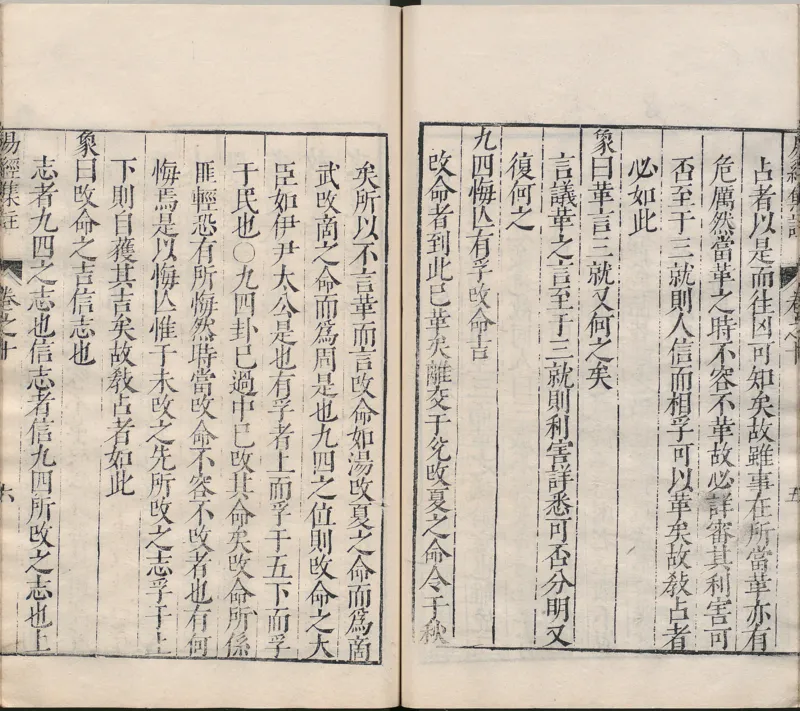 占者以是而往凶可知矣故雖事在所當革亦有
危厲然當革之時不容不革故必詳審其利害可
否至于三就則人信而相孚可以革矣故教占者
必如此
象曰革言三就又何之矣
言議革之言至于三就則利害詳悉可否分明又
復何之
九四悔亾有孚改命吉
改命者到此已革矣離交于兌改夏之命令于秋
矣所以不言革而言改命如湯改夏之命而爲商
武改商之命而爲周是也九四之位則改命之大
臣如伊尹太公是也有孚者上而孚于五下而孚
于民也○九四卦已過中已改其命矣改命所係
匪輕恐有所悔然時當改命不容不改者也有何
悔焉是以悔亾惟于未改之先所改之志孚于上
下則自獲其吉矣故教占者如此
象曰改命之吉信志也
志者九四之志也信志者信九四所改之志也上
易經集註 卷之十 六